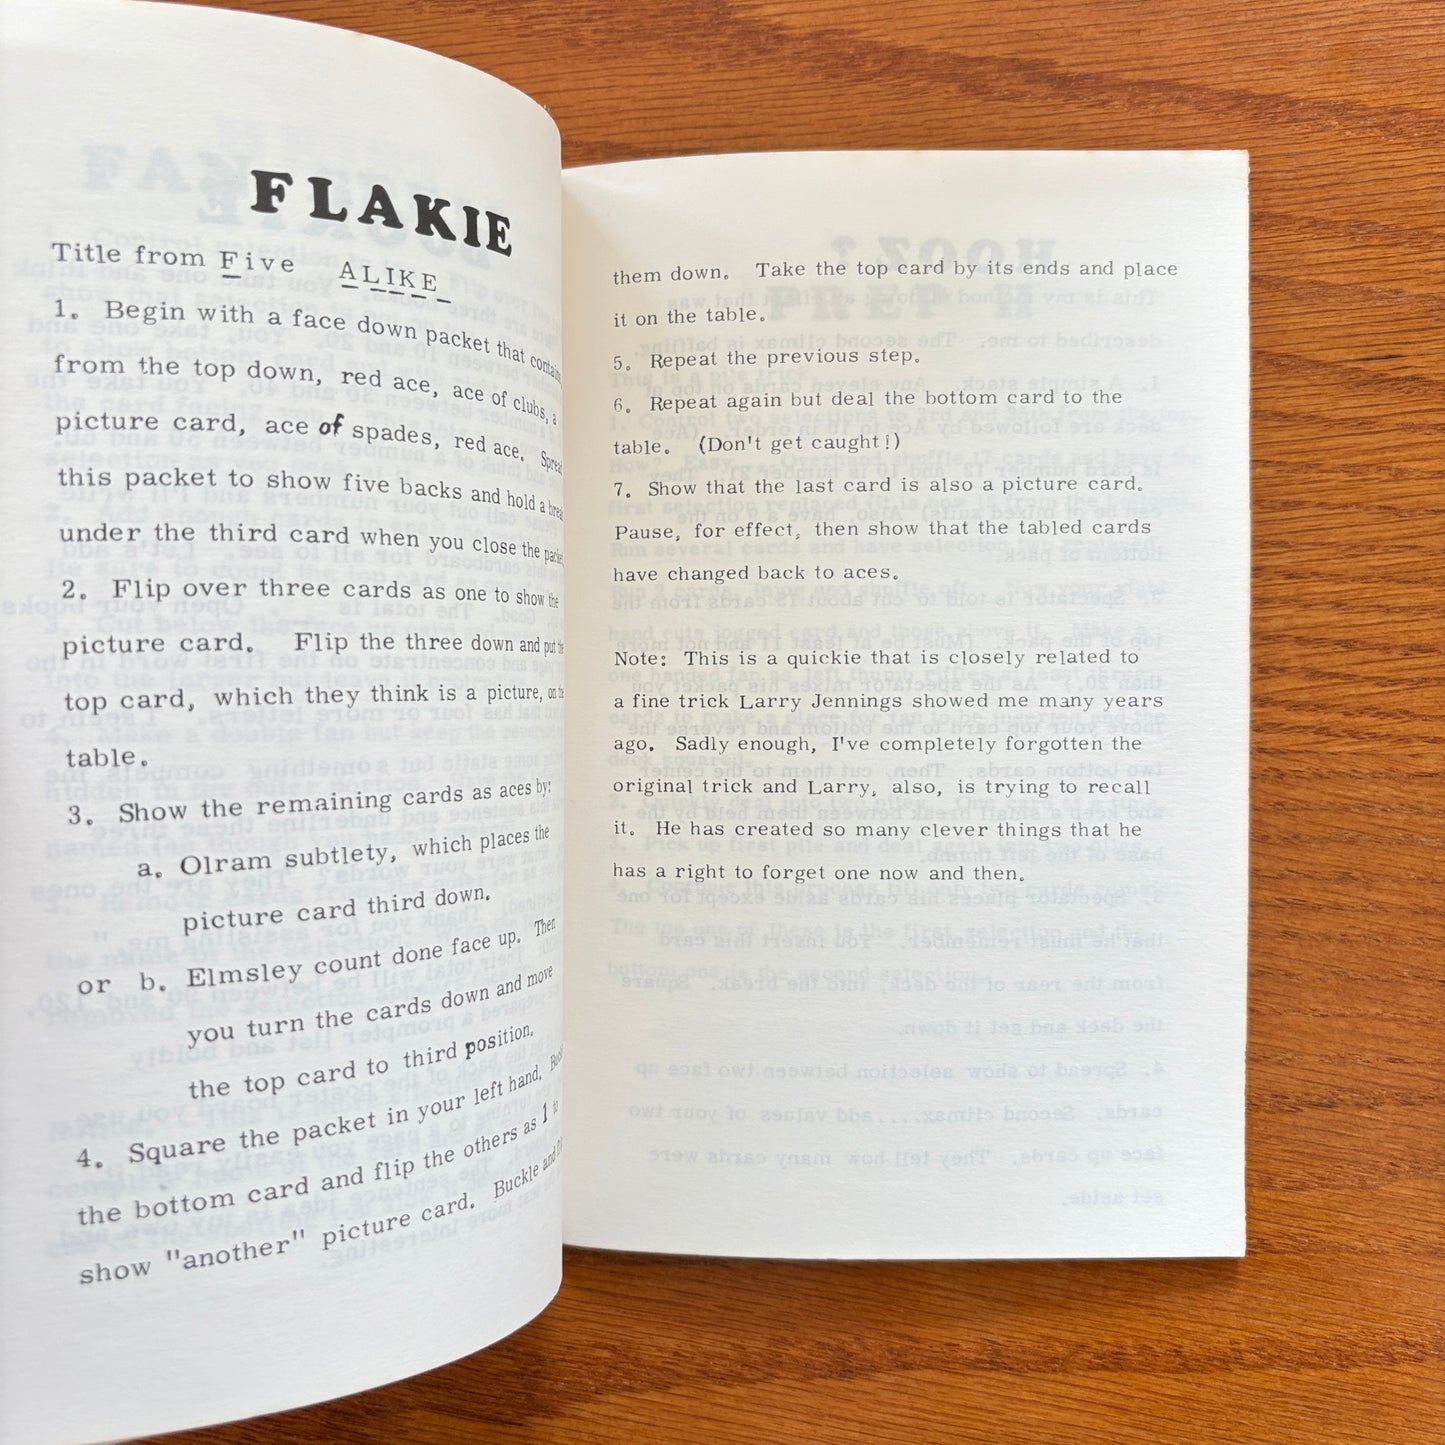 FLAKIE
Title from Five ALIKE
1. Begin with a face down packet that contains,
from the top down, red ace, ace of clubs, a
picture card, ace of spades, red ace. Spread
this packet to show five backs and hold a break
under the third card when you close the packet.
2. Flip over three cards as one to show the
picture card. Flip the three down and put the
top card, which they think is a picture, on the
table.
3. Show the remaining cards as aces by:
a. Olram subtlety, which places the
picture card third down.
or b. Elmsley count done face up. Then
you turn the cards down and move
the top card to third position.
4. Square the packet in your left hand.
the bottom card and flip the others as 1 to
show "another" picture card. Buckle and
them down. Take the top card by its ends and place
it on the table.
5. Repeat the previous step.
6. Repeat again but deal the bottom card to the
table. (Don't get caught!)
7. Show that the last card is also a picture card.
Pause, for effect, then show that the tabled cards
have changed back to aces.
Note: This is a quickie that is closely related to
a fine trick Larry Jennings showed me many years
ago. Sadly enough, I've completely forgotten the
original trick and Larry, also, is trying to recall
it. He has created so many clever things that he
has a right to forget one now and then.